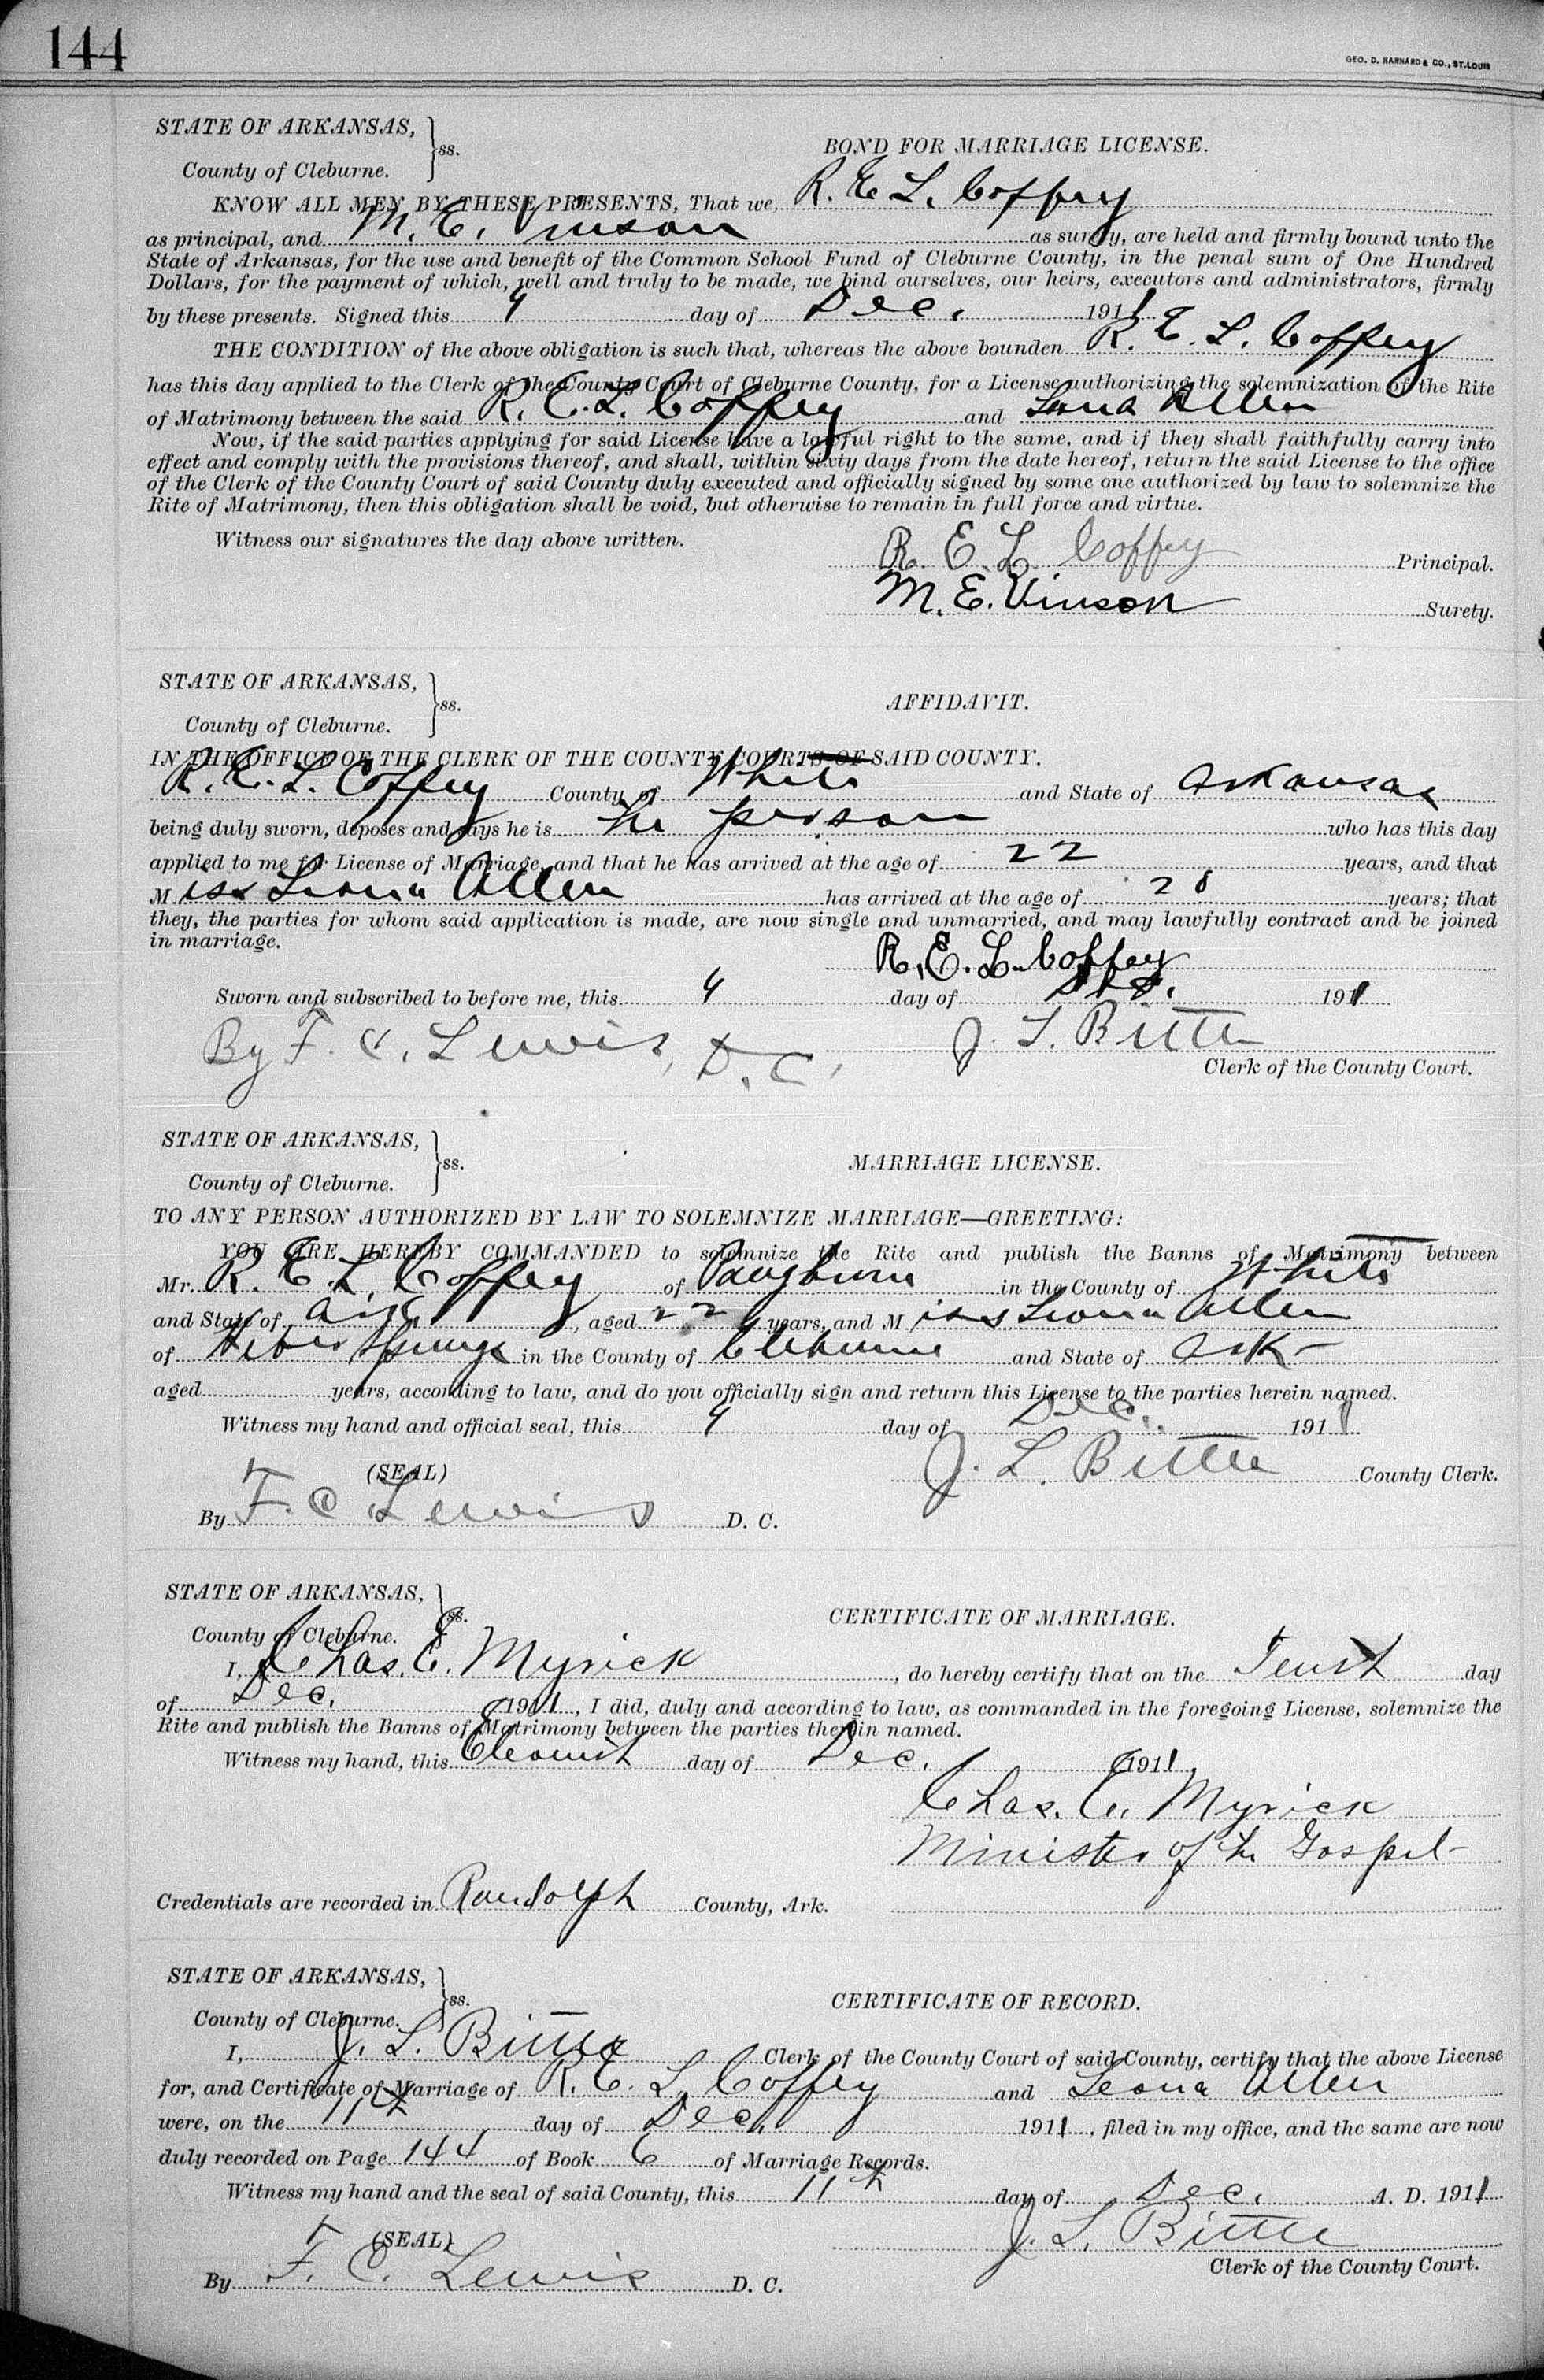 144
GEO. D. BARNARD & CO., ST. LOUIS
STATE OF ARKANSAS,
County of Cleburne. } ss.
BOND FOR MARRIAGE LICENSE.
KNOW ALL MEN BY THESE PRESENTS, That we, R. E. L. Coffey
as principal, and M. E. Vinson as surety, are held and firmly bound unto the
State of Arkansas, for the use and benefit of the Common School Fund of Cleburne County, in the penal sum of One Hundred
Dollars, for the payment of which, well and truly to be made, we bind ourselves, our heirs, executors and administrators, firmly
by these presents. Signed this 4 day of Dec. 1911
THE CONDITION of the above obligation is such that, whereas the above bounden R. E. L. Coffey
has this day applied to the Clerk of the County Court of Cleburne County, for a License authorizing the solemnization of the Rite
of Matrimony between the said R. E. L. Coffey and Leona Allen
Now, if the said parties applying for said License have a lawful right to the same, and if they shall faithfully carry into
effect and comply with the provisions thereof, and shall, within sixty days from the date hereof, return the said License to the office
of the Clerk of the County Court of said County duly executed and officially signed by some one authorized by law to solemnize the
Rite of Matrimony, then this obligation shall be void, but otherwise to remain in full force and virtue.
Witness our signatures the day above written.
R. E. L. Coffey Principal.
M. E. Vinson Surety.
STATE OF ARKANSAS,
County of Cleburne. } ss.
AFFIDAVIT.
IN THE OFFICE OF THE CLERK OF THE COUNTY COURTS OF SAID COUNTY.
R. E. L. Coffey County of White and State of Arkansas
being duly sworn, deposes and says he is the person who has this day
applied to me for License of Marriage, and that he has arrived at the age of 22 years, and that
Miss Leona Allen has arrived at the age of years; that
they, the parties for whom said application is made, are now single and unmarried, and may lawfully contract and be joined
in marriage.
R. E. L. Coffey
Sworn and subscribed to before me, this 4 day of Dec. 1911
By F. C. Lewis, D. C. J. L. Bittle
Clerk of the County Court.
STATE OF ARKANSAS,
County of Cleburne. } ss.
MARRIAGE LICENSE.
TO ANY PERSON AUTHORIZED BY LAW TO SOLEMNIZE MARRIAGE—GREETING:
YOU ARE HEREBY COMMANDED to solemnize the Rite and publish the Banns of Matrimony between
Mr. R. E. L. Coffey of Pangburn in the County of White
and State of Ark, aged 22 years, and Miss Leona Allen
of Heber Springs in the County of Cleburne and State of Ark
aged years, according to law, and do you officially sign and return this License to the parties herein named.
Witness my hand and official seal, this 4 day of Dec. 1911
(SEAL) J. L. Bittle County Clerk.
By F. C. Lewis D. C.
STATE OF ARKANSAS,
County of Cleburne. } ss.
CERTIFICATE OF MARRIAGE.
I, Chas. E. Myrick, do hereby certify that on the day
of Dec. 1911, I did, duly and according to law, as commanded in the foregoing License, solemnize the
Rite and publish the Banns of Matrimony between the parties therein named.
Witness my hand, this day of Dec. 1911.
Chas. E. Myrick
Minister of the Gospel
Credentials are recorded in Randolph County, Ark.
STATE OF ARKANSAS,
County of Cleburne. } ss.
CERTIFICATE OF RECORD.
I, J. L. Bittle Clerk of the County Court of said County, certify that the above License
for, and Certificate of Marriage of R. E. L. Coffey and Leona Allen
were, on the 11th day of Dec. 1911, filed in my office, and the same are now
duly recorded on Page 144 of Book 6 of Marriage Records.
Witness my hand and the seal of said County, this 11th day of Dec. A. D. 1911
(SEAL) J. L. Bittle
Clerk of the County Court.
By F. C. Lewis D. C.